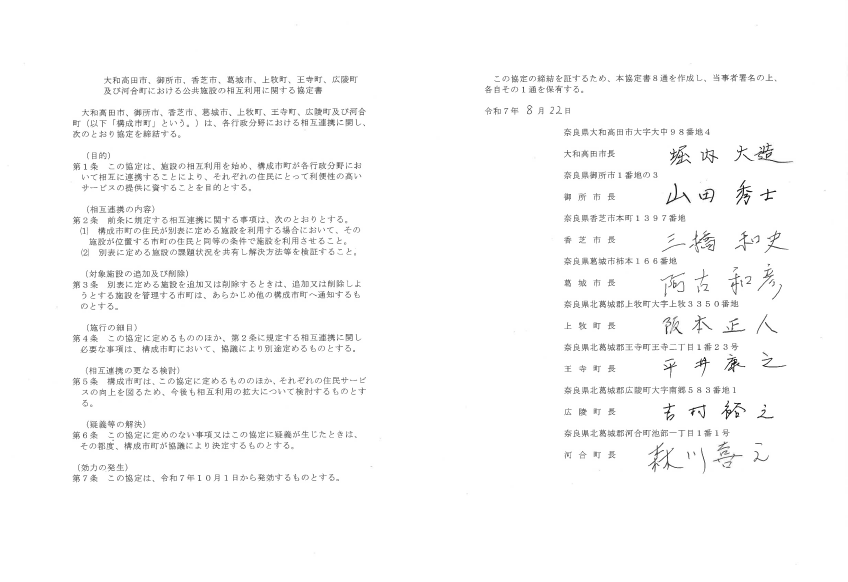 大和高田市、御所市、香芝市、葛城市、上牧町、王寺町、広陵町
及び河合町における公共施設の相互利用に関する協定書
大和高田市、御所市、香芝市、葛城市、上牧町、王寺町、広陵町及び河合
町（以下「構成市町」という。）は、各行政分野における相互連携に関し、
次のとおり協定を締結する。
（目的）
第１条　この協定は、施設の相互利用を始め、構成市町が各行政分野にお
いて相互に連携することにより、それぞれの住民にとって利便性の高い
サービスの提供に資することを目的とする。
（相互連携の内容）
第２条　前条に規定する相互連携に関する事項は、次のとおりとする。
⑴　構成市町の住民が別表に定める施設を利用する場合において、その
施設が位置する市町の住民と同等の条件で施設を利用させること。
⑵　別表に定める施設の課題状況を共有し解決方法等を検証すること。
（対象施設の追加及び削除）
第３条　別表に定める施設を追加又は削除するときは、追加又は削除しよ
うとする施設を管理する市町は、あらかじめ他の構成市町へ通知するも
のとする。
（施行の細目）
第４条　この協定に定めるもののほか、第２に規定する相互連携に関し
必要な事項は、構成市町において、協議により別途定めるものとする。
（相互連携の更なる検討）
第５条　構成市町は、この協定に定めるもののほか、それぞれの住民サービ
スの向上を図るため、今後も相互利用の拡大について検討するものとす
る。
（疑義等の解決）
第６条　この協定に定めのない事項又はこの協定に疑義が生じたときは、
その都度、構成市町が協議により決定するものとする。
（効力の発生）
第７条　この協定は、令和７年１０月１日から発効するものとする。
この協定の締結を証するため、本協定書８通を作成し、当事者署名の上、
各自その１通を保有する。
令和７年 8 月 22 日
奈良県大和高田市大字大中９８番地４
大和高田市長　堀内 大造
奈良県御所市１番地の３
御所市長　山田 秀士
奈良県香芝市本町１３９７番地
香芝市長　三橋 和史
奈良県葛城市柿本１６６番地
葛城市長　阿古 和彦
奈良県北葛城郡上牧町大字上牧３３５０番地
上牧町長　阪本 正人
奈良県北葛城郡王寺町王寺二丁目１番２３号
王寺町長　平井 康之
奈良県北葛城郡広陵町大字南郷５８３番地１
広陵町長　吉村 裕之
奈良県北葛城郡河合町池部一丁目１番１号
河合町長　森川 喜之